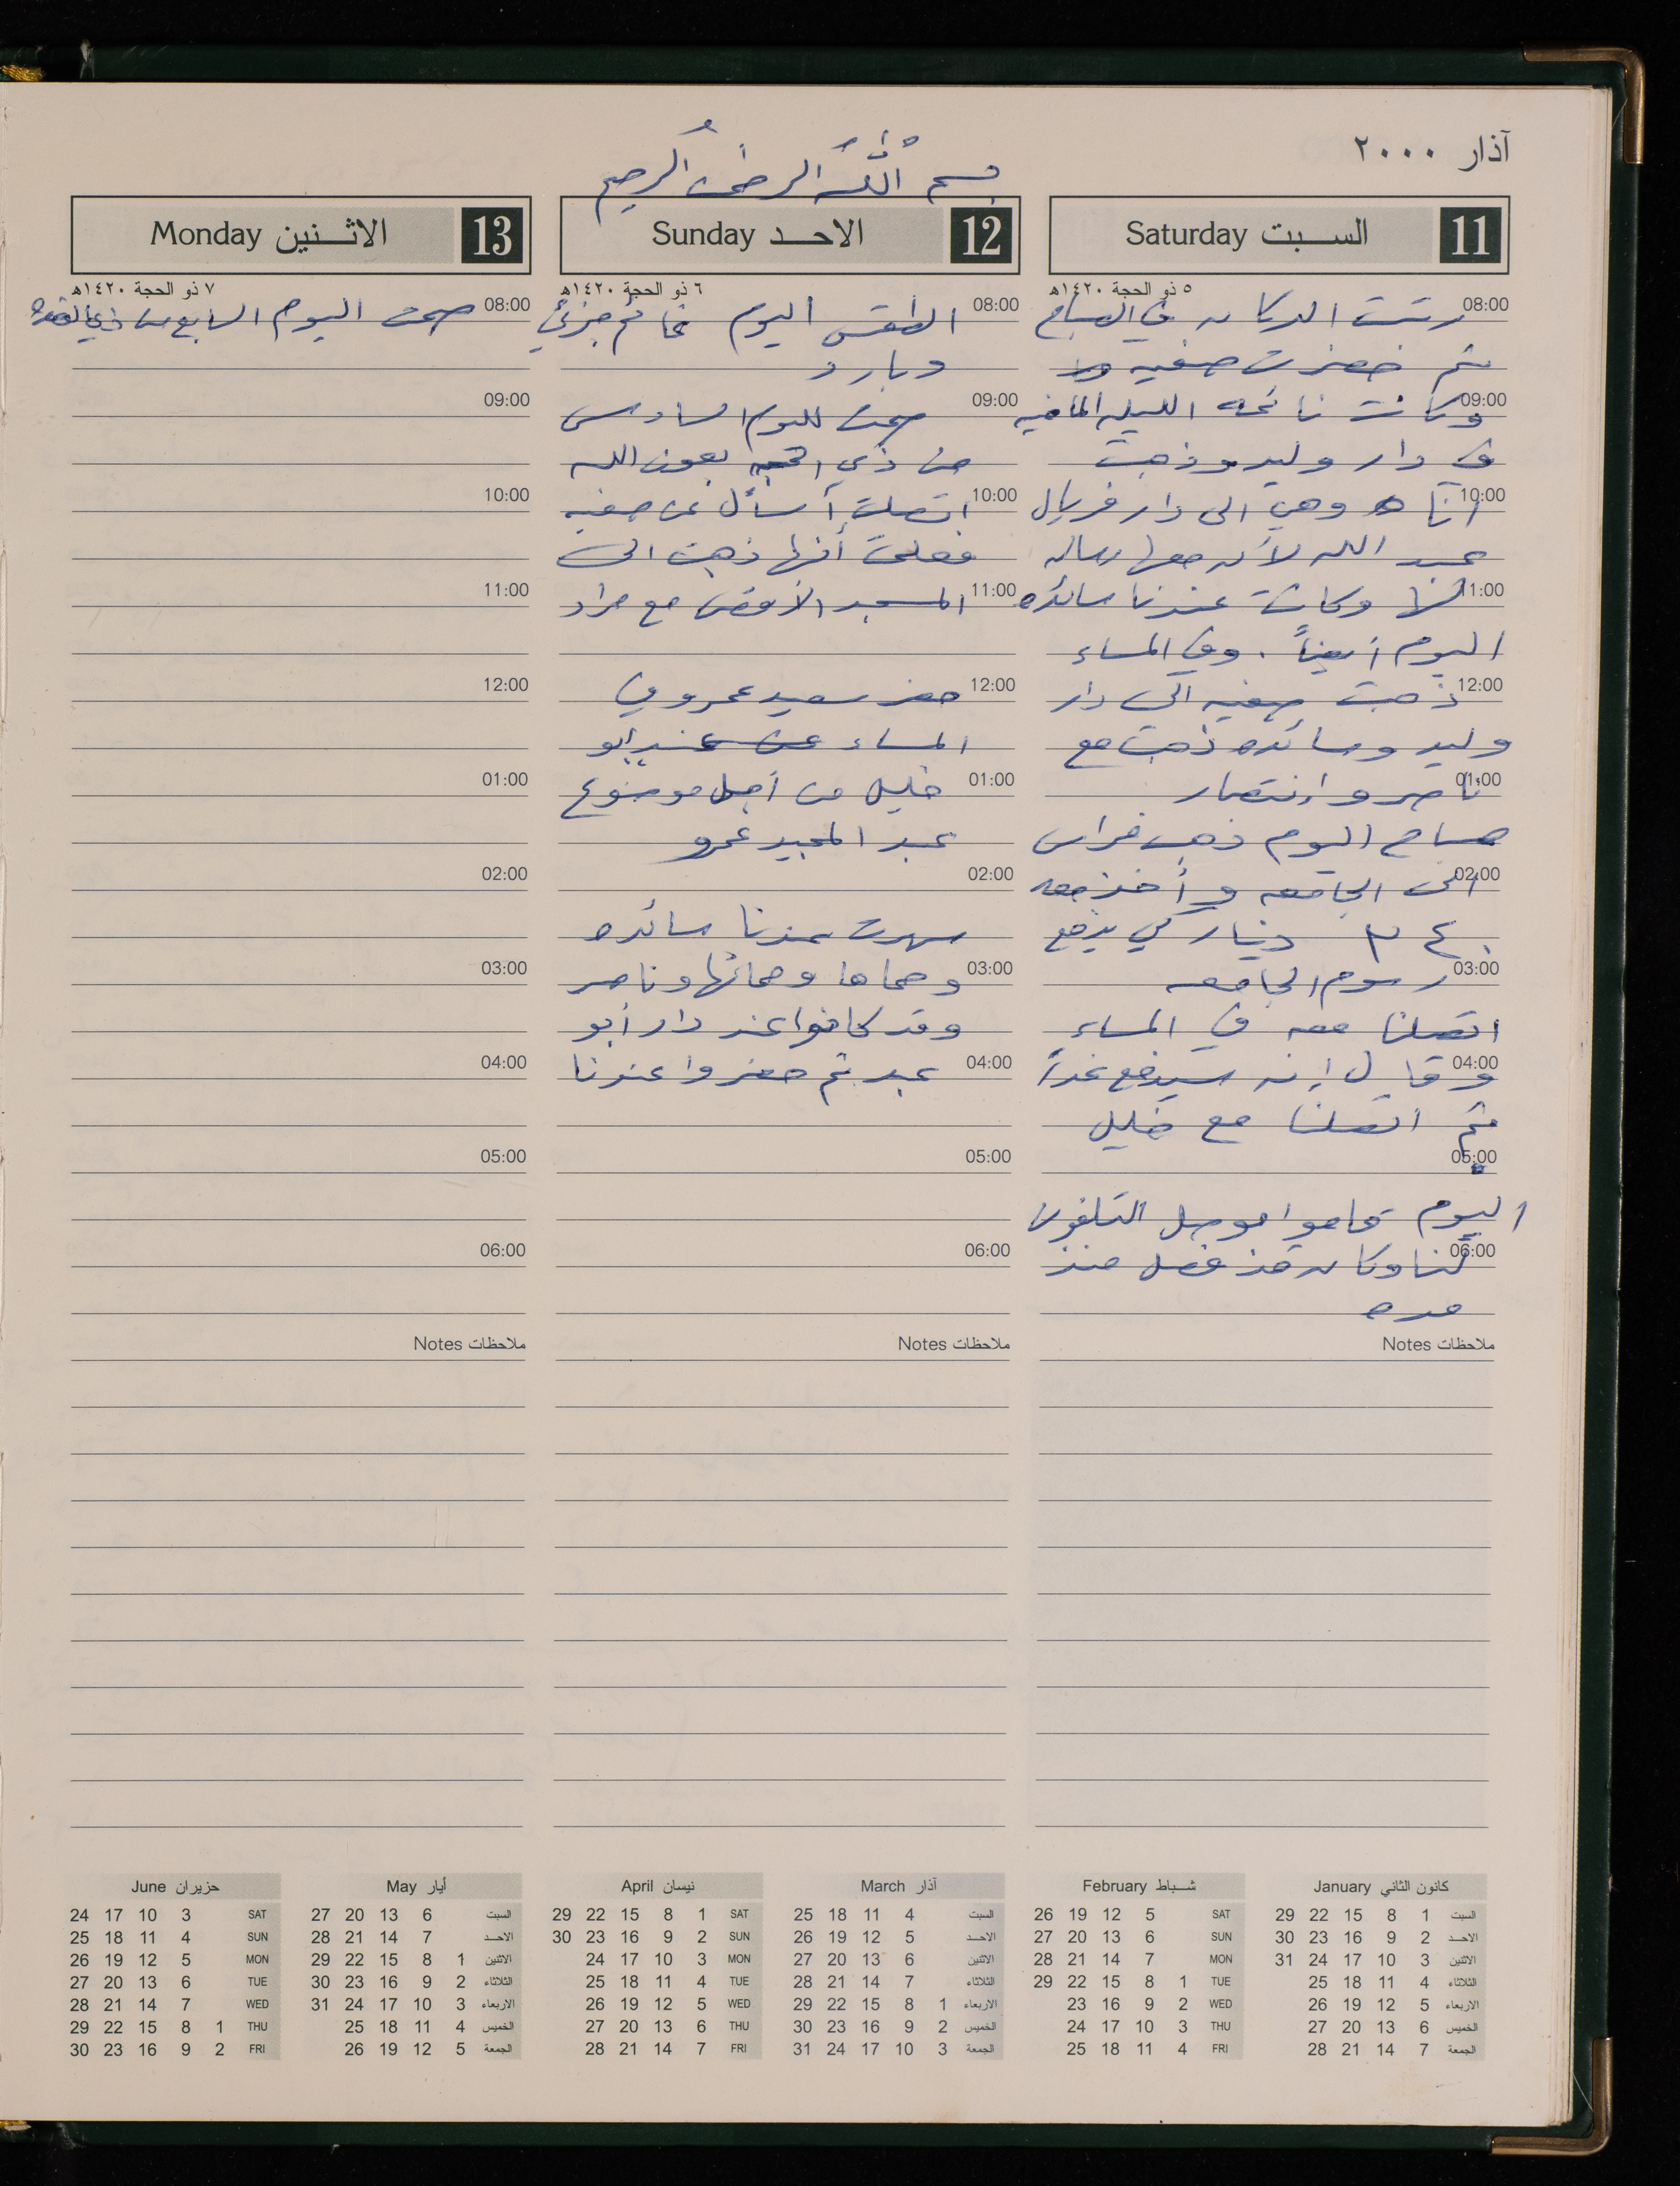 آذار ٢٠٠٠
بسم الله الرحمن الرحيم
11 السبت Saturday
٥ ذو الحجة ١٤٢٠هـ
08:00 رتبت الدكان في الصباح
ثم حضرت صفيه
09:00 وكانت نائمه الليله الماضيه
في دار وليد وذهبت
10:00 أنا وهي الى دار فريال
عبد الله لأن معها رساله
11:00 لنا وكانت عندنا سائده
اليوم أيضاً . وفي المساء
12:00 ذهبت صفيه الى دار
وليد وسائده ذهبت مع
01:00 ناصر وانتصار
صباح اليوم ذهب فراس
02:00 الى الجامعه وأخذ معه
٣٤٠ دينار كي يدفع
03:00 رسوم الجامعه
اتصلنا معه في المساء
04:00 وقال إنه سيدفع غداً
ثم اتصلنا مع خليل
05:00
اليوم قاموا بوصل التلفون
06:00 لنا وكان قد فصل منذ
مده
ملاحظات Notes
12 الاحد Sunday
٦ ذو الحجة ١٤٢٠هـ
08:00 الطقس اليوم غائم جزئي
وبارد
09:00 صمت لليوم السادس
من ذي الحجه بعون الله
10:00 اتصلت أسأل عن صفيه
فعلمت أنها ذهبت الى
11:00 المسجد الأقصى مع مراد
12:00 حضر سعيد عمرو في
المساء من عند أبو
01:00 خليل من أجل موضوع
عبد المجيد عمرو
02:00
سهرت عندنا سائده
03:00 وحماها وحماتها وناصر
وقد كانوا عند دار أبو
04:00 عبد ثم حضروا عندنا
05:00
06:00
ملاحظات Notes
13 الاثنين Monday
٧ ذو الحجة ١٤٢٠هـ
08:00 صمت اليوم السابع من ذي القعده
09:00
10:00
11:00
12:00
01:00
02:00
03:00
04:00
05:00
06:00
ملاحظات Notes
كانون الثاني January
السبت 1 8 15 22 29
الاحد 2 9 16 23 30
الاثنين 3 10 17 24 31
الثلاثاء 4 11 18 25
الاربعاء 5 12 19 26
الخميس 6 13 20 27
الجمعة 7 14 21 28
شباط February
SAT 5 12 19 26
SUN 6 13 20 27
MON 7 14 21 28
TUE 1 8 15 22 29
WED 2 9 16 23
THU 3 10 17 24
FRI 4 11 18 25
آذار March
السبت 4 11 18 25
الاحد 5 12 19 26
الاثنين 6 13 20 27
الثلاثاء 7 14 21 28
الاربعاء 1 8 15 22 29
الخميس 2 9 16 23 30
الجمعة 3 10 17 24 31
نيسان April
SAT 1 8 15 22 29
SUN 2 9 16 23 30
MON 3 10 17 24
TUE 4 11 18 25
WED 5 12 19 26
THU 6 13 20 27
FRI 7 14 21 28
أيار May
السبت 6 13 20 27
الاحد 7 14 21 28
الاثنين 1 8 15 22 29
الثلاثاء 2 9 16 23 30
الاربعاء 3 10 17 24 31
الخميس 4 11 18 25
الجمعة 5 12 19 26
حزيران June
SAT 3 10 17 24
SUN 4 11 18 25
MON 5 12 19 26
TUE 6 13 20 27
WED 7 14 21 28
THU 1 8 15 22 29
FRI 2 9 16 23 30